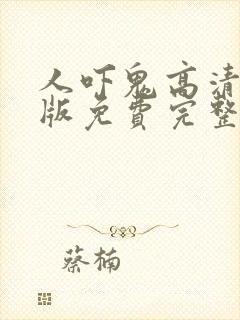 人吓鬼高清
版免费完整
蔡楠